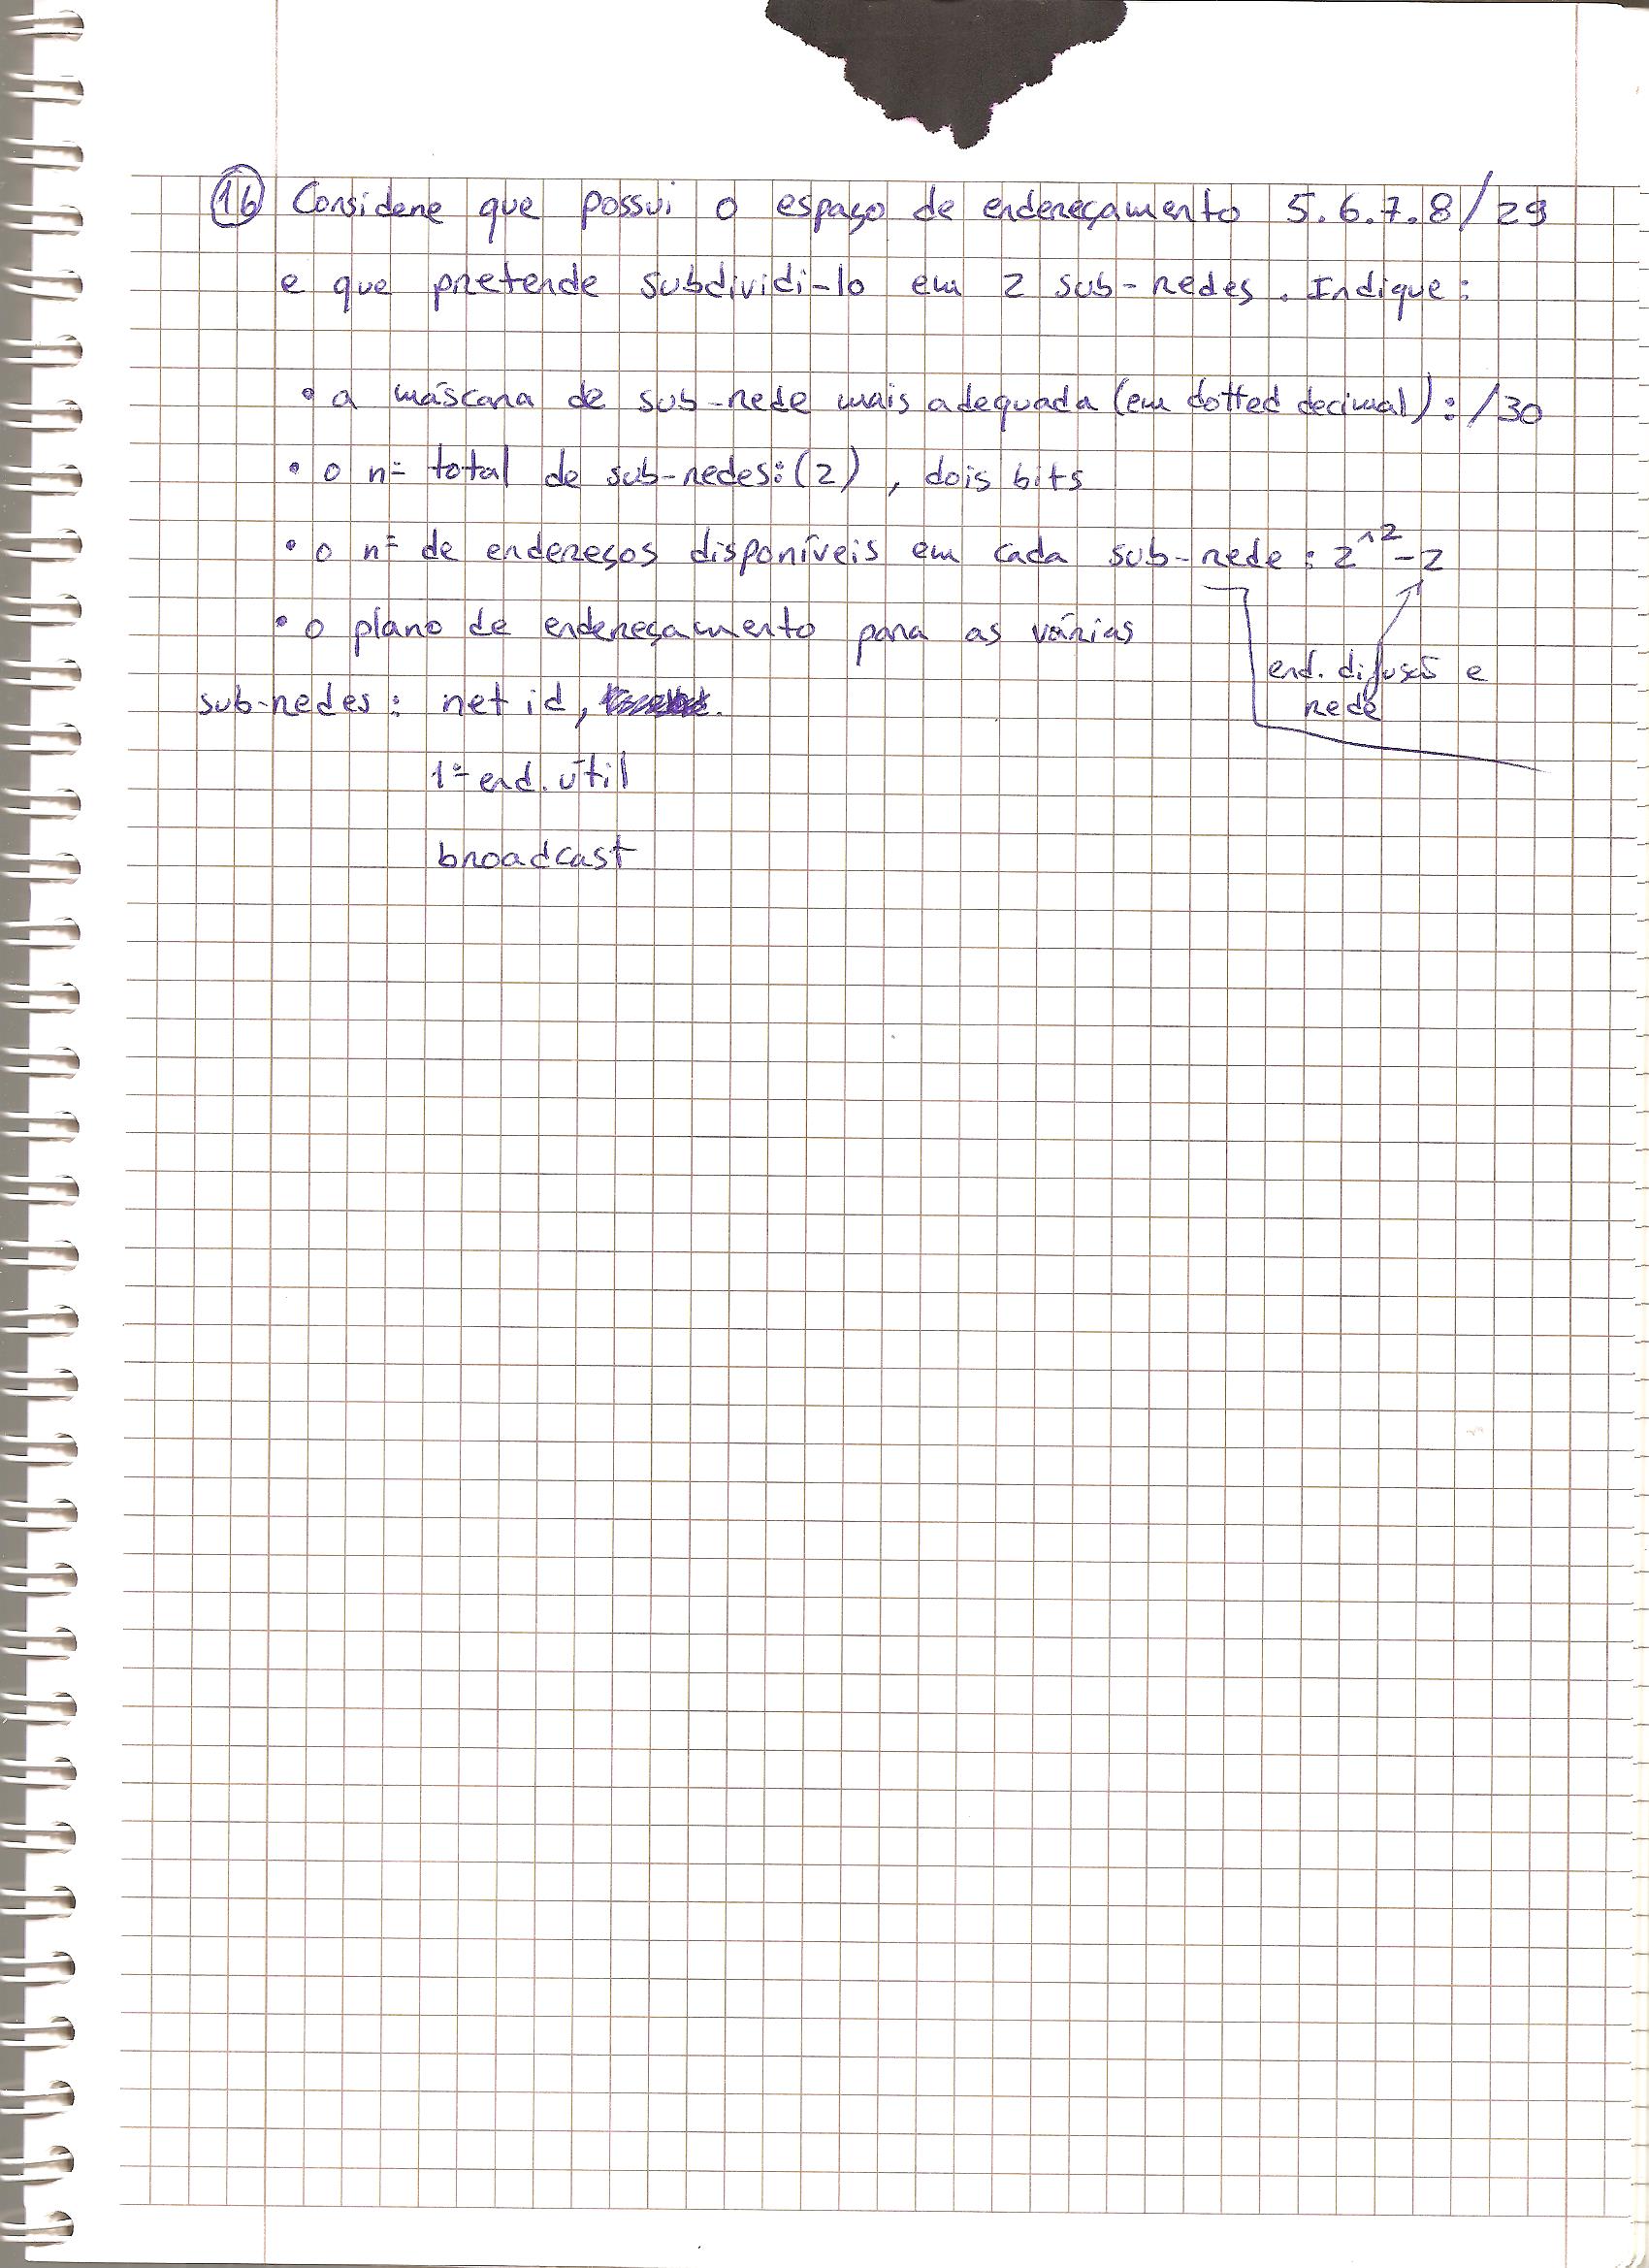 16 Considere que possui o espaço de endereçamento 5.6.7.8/29
e que pretende subdividi-lo em 2 sub-redes. Indique:
• a máscara de sub-rede mais adequada (em dotted decimal): /30
• o nº total de sub-redes: (2), dois bits
• o nº de endereços disponíveis em cada sub-rede: 2^2-2
• o plano de endereçamento para as várias
end. difusã e
rede
sub-redes: net id,
1º end. útil
broadcast